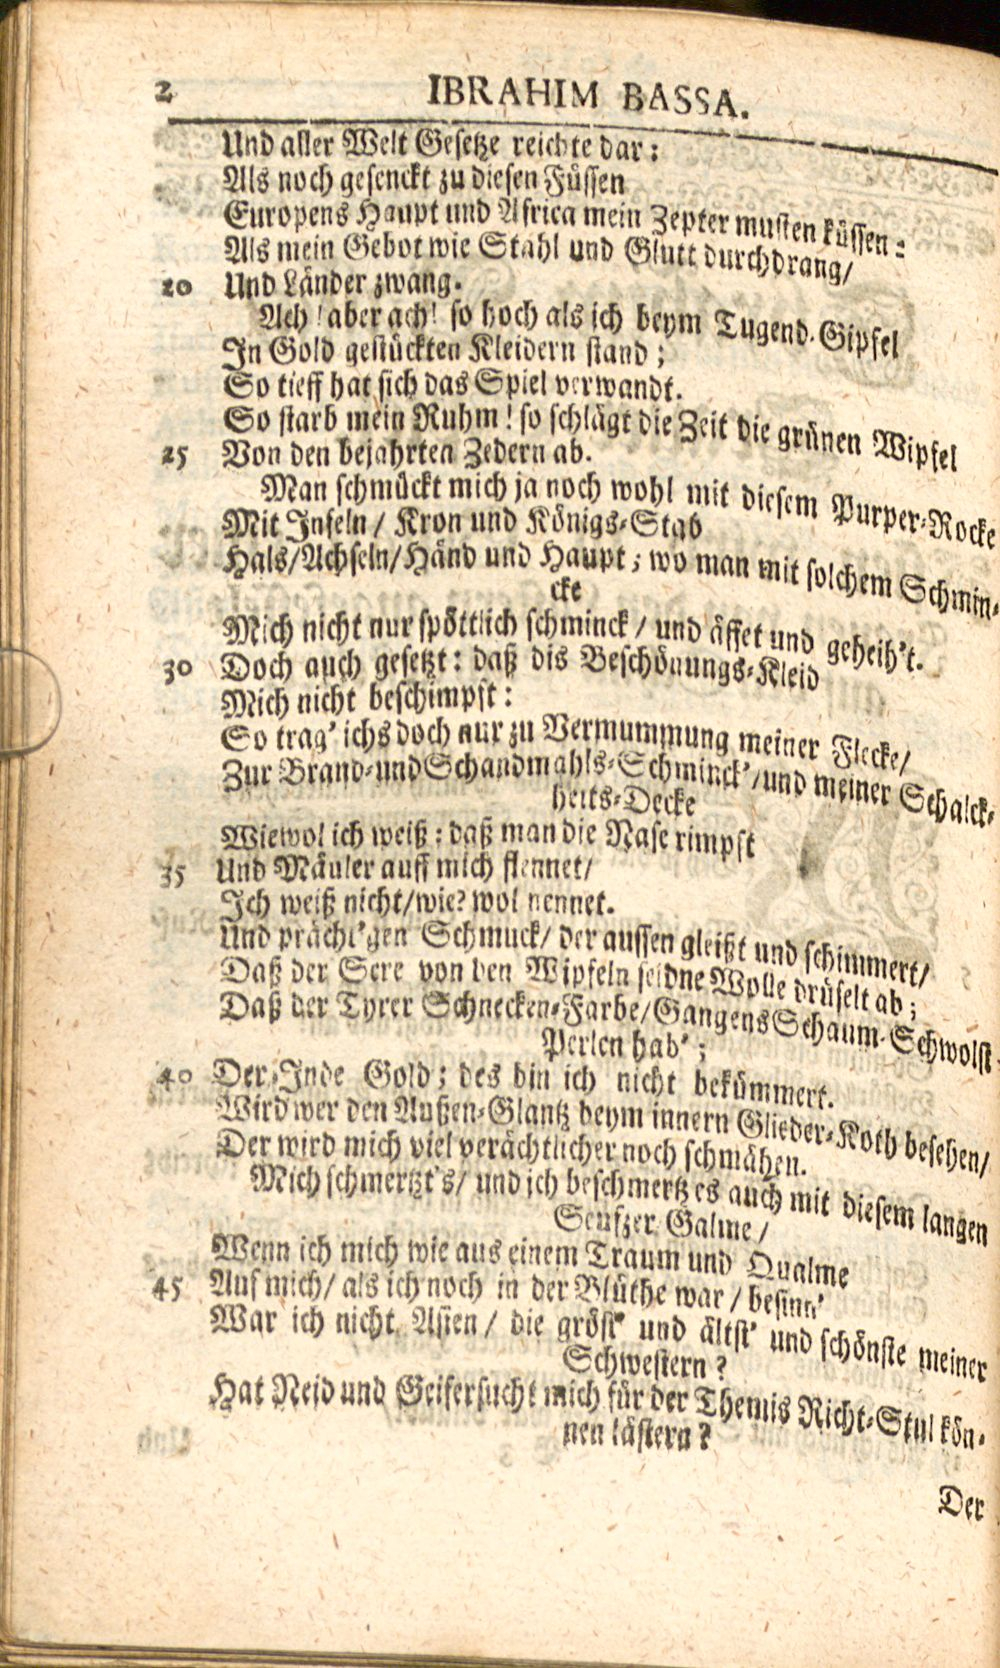 2 IBRAHIM BASSA.
Und aller Welt Gesetze reichte dar:
Als noch gesenckt zu diesen Füssen
Europens Haupt und Africa mein Zepter musten küssen:
Als mein Gebot wie Stahl und Glutt durchdrang/
20 Und Länder zwang.
Ach! aber ach! so hoch als ich beym Tugend-Gipfel
In Gold gestückten Kleidern stand;
So tieff hat sich das Spiel verwandt.
So starb mein Ruhm! so schlägt die Zeit die grünen Wipfel
25 Von den bejahrten Zedern ab.
Man schmückt mich ja noch wohl mit diesem Purper-Rocke
Mit Infeln/ Kron und Königs-Stab
Hals/ Achseln/ Händ und Haupt; wo man mit solchem Schmin-
cke
Mich nicht nur spöttlich schminck/ und äffet und geheih't.
30 Doch auch gesetzt: daß dis Beschönungs-Kleid
Mich nicht beschimpft:
So trag' ichs doch nur zu Vermummung meiner Flecke/
Zur Brand- und Schandmahls-Schminck'/ und meiner Schalck-
heits-Decke
Wiewol ich weiß: daß man die Nase rimpft
35 Und Mäuler auff mich flennet/
Ich weiß nicht/ wie? wol nennet.
Und prächt'gen Schmuck/ der aussen gleißt und schimmert/
Daß der Sere von den Wipfeln seidne Wolle drüselt ab;
Daß der Tyrer Schnecken-Farbe/ Gangens Schaum-Schwolst-
Perlen hab';
40 Der Inde Gold; des bin ich nicht bekümmert.
Wird wer den Außen-Glantz beym innern Glieder-Koth besehen/
Der wird mich viel verächtlicher noch schmähen.
Mich schmertzt's/ und ich beschmertz es auch mit diesem langen
Seufzer Galme/
Wenn ich mich wie aus einem Traum und Qualme
45 Auf mich/ als ich noch in der Blüthe war/ besinn'
War ich nicht Asien/ die gröst' und ältst' und schönste meiner
Schwestern?
Hat Neid und Geifersucht mich für der Themis Richt-Stul kön-
nen lästern?
Der